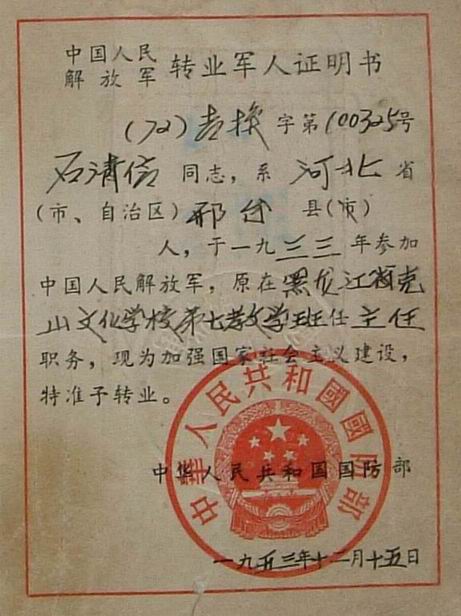 中国人民
解放军 转业军人证明书
(72)吉换字第100325号
石清信 同志，系 河北 省
(市、自治区) 邢台 县(市)
人，于一九三三年参加
中国人民解放军，原在黑龙江省克
山文化学校第七教学班任主任
职务，现为加强国家社会主义建设，
特准予转业。
中华人民共和國國防部
中华人民共和国国防部
一九五三年十二月十五日